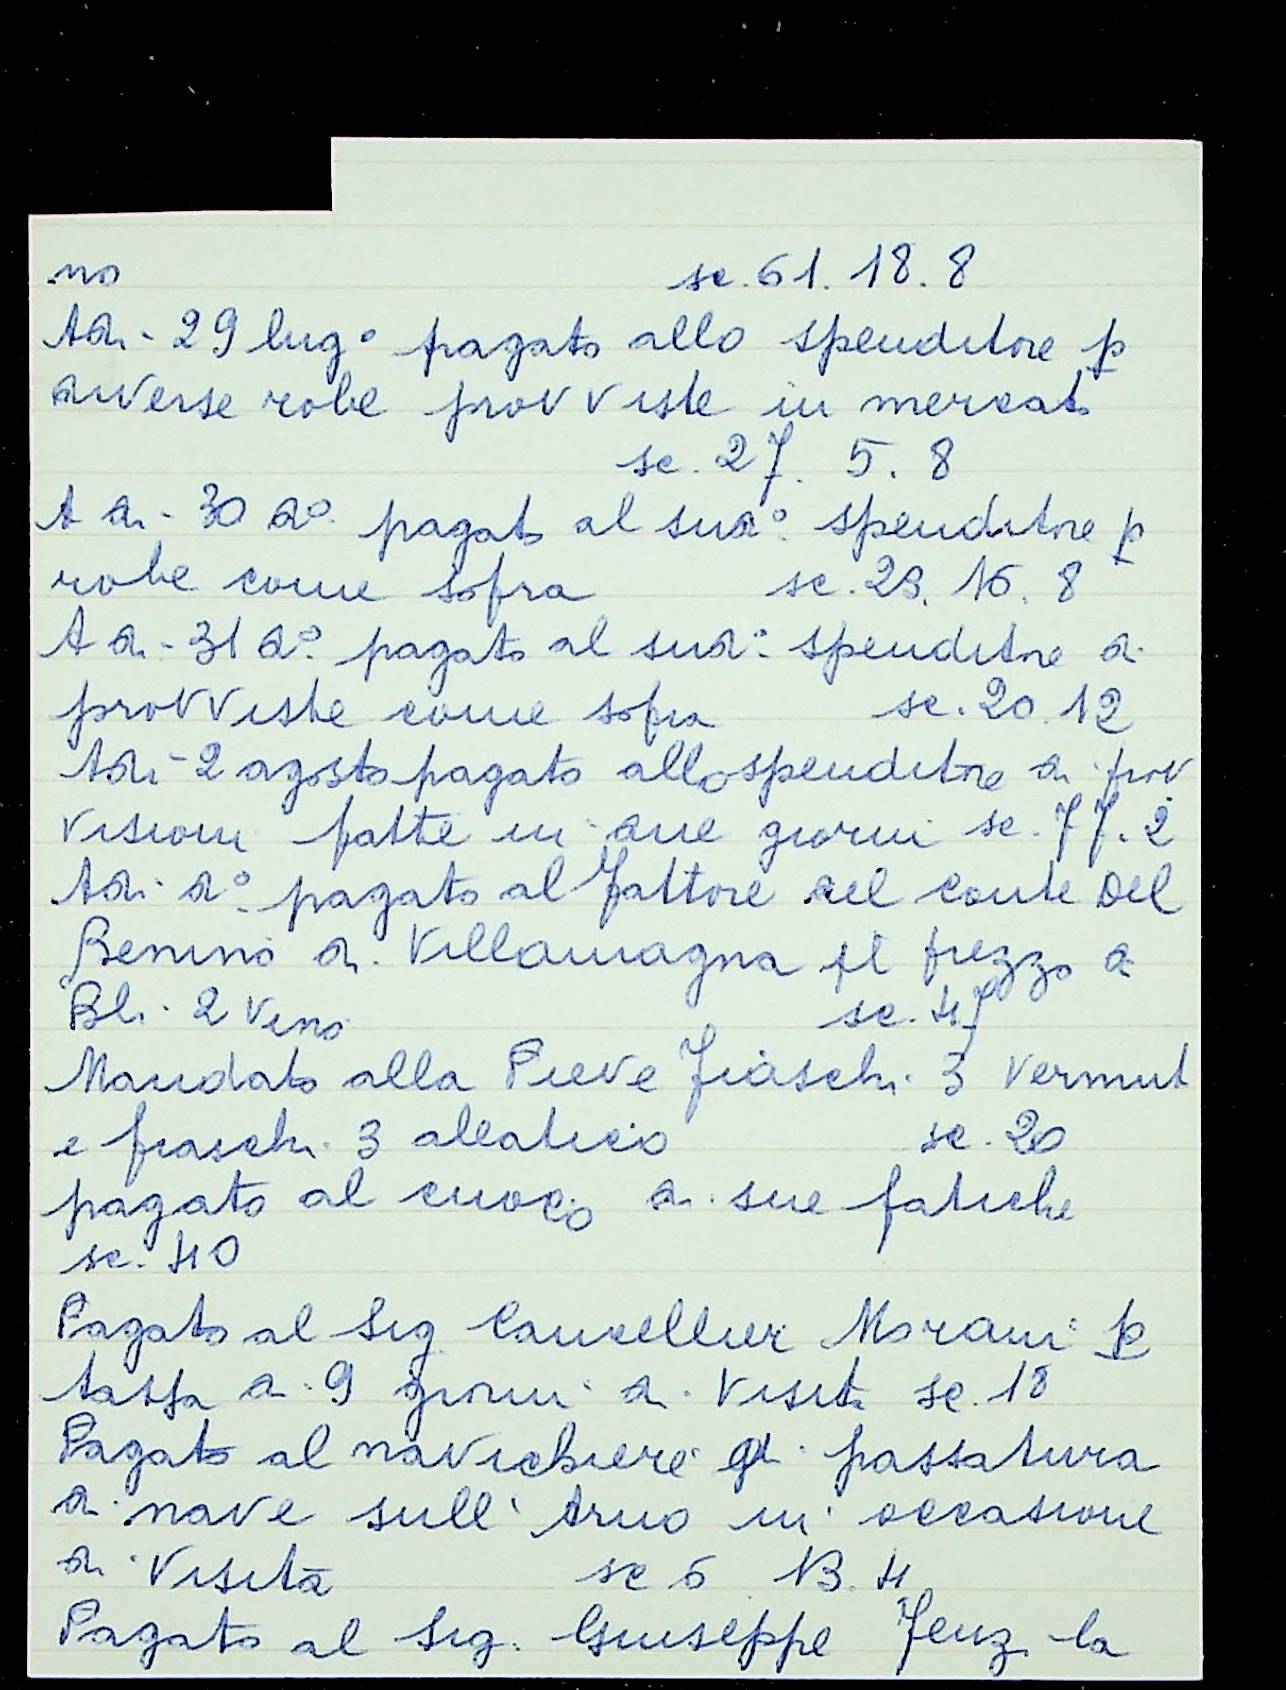 no sc. 61. 18. 8
Adi - 29 lug° pagato allo spenditore p
diverse robe provviste in mercato
sc. 27. 5. 8
A di - 30 d° pagato al sud° spenditore p
robe come sopra sc. 23. 16. 8
A di - 31 d° pagato al sud° spenditore di
provviste come sopra sc. 20. 12
Adi - 2 agosto pagato allo spenditore di prov
visioni fatte in due giorni sc. 77. 2
Adi d° pagato al Fattore del Conte Del
Benino di Villamagna pl prezzo di
Bli. 2 vino sc. 47
Mandato alla Pieve Fiaschi 3 Vermut
e fiaschi 3 aleatico sc. 20
pagato al cuoco di sue fatiche
sc. 40
Pagato al Sig Cancellier Morani p
tassa di 9 giorni di visita sc. 18
Pagato al navichiere pl passatura
di nave sull' Arno in occasione
di Visita sc 6 13. 4
Pagato al Sig. Giuseppe Fenzi la